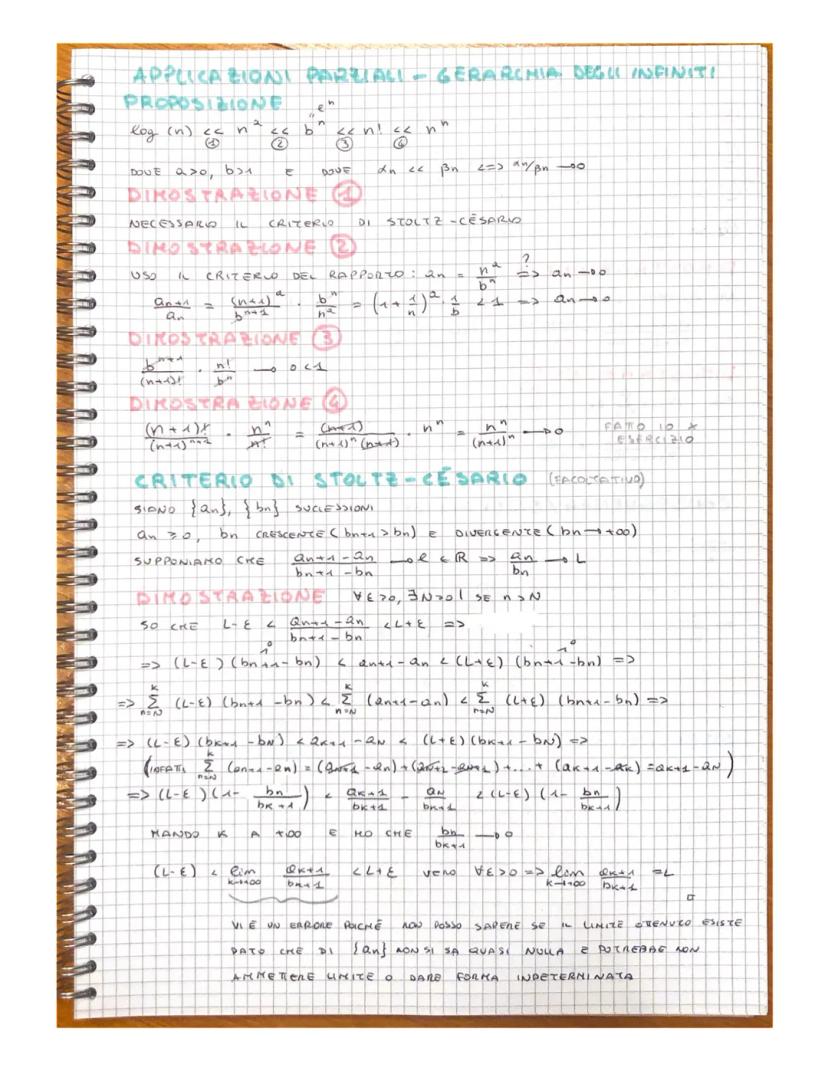 APPLICAZIONI PARZIALI - GERARCHIA DEGLI INFINITI
PROPOSIZIONE
log (n) << n^a << b^n "e^n" << n! << n^n
① ② ③ ④
DOVE a>0, b>1 E DOVE αn << βn <=> αn/βn → 0
DIMOSTRAZIONE ①
NECESSARIO IL CRITERIO DI STOLTZ-CÉSARIO
DIMOSTRAZIONE ②
USO IL CRITERIO DEL RAPPORTO: an = n^a/b^n ?=> an → 0
an+1/an = (n+1)^a/b^(n+1) · b^n/n^a = (1+1/n)^a · 1/b < 1 => an → 0
DIMOSTRAZIONE ③
b^(n+1)/(n+1)! · n!/b^n → 0 < 1
DIMOSTRAZIONE ④
(n+1)!/(n+1)^(n+1) · n^n/n! = (n+1)/((n+1)^n (n+1)) · n^n = n^n/(n+1)^n → 0 FATO IO X
ESERCIZIO
CRITERIO DI STOLTZ-CÉSARIO (FACOLTATIVO)
SIANO {an}, {bn} SUCCESSIONI
an ≥ 0, bn CRESCENTE (bn+1 > bn) E DIVERGENTE (bn → +∞)
SUPPONIAMO CHE (an+1 - an)/(bn+1 - bn) → l ∈ R => an/bn → L
DIMOSTRAZIONE ∀ε>0, ∃N>0 | SE n>N
SO CHE L-ε < (an+1 - an)/(bn+1 - bn) < L+ε =>
=> (L-ε) (bn+1 - bn) < an+1 - an < (L+ε) (bn+1 - bn) =>
=> Σ_{n=N}^{K} (L-ε) (bn+1 - bn) < Σ_{n=N}^{K} (an+1 - an) < Σ_{n=N}^{K} (L+ε) (bn+1 - bn) =>
=> (L-ε) (bK+1 - bN) < aK+1 - aN < (L+ε) (bK+1 - bN) =>
(INFATTI Σ_{n=N}^{K} (an+1 - an) = (an+1 - an) + (an+2 - an+1) + ... + (aK+1 - aK) = aK+1 - aN)
=> (L-ε) (1 - bn/bK+1) < aK+1/bK+1 - aN/bK+1 < (L-ε) (1 - bn/bK+1)
MANDO K A +∞ E HO CHE bn/bK+1 → 0
(L-ε) < lim_{K→+∞} aK+1/bK+1 < L+ε VERO ∀ε>0 => lim_{K→+∞} aK+1/bK+1 = L
□
VI È UN ERRORE POICHÉ NON POSSO SAPERE SE IL LIMITE OTENUTO ESISTE
DATO CHE DI {an} NON SI SA QUASI NULLA E POTREBBE NON
AMMETTERE LIMITE O DARE FORMA INDETERMINATA